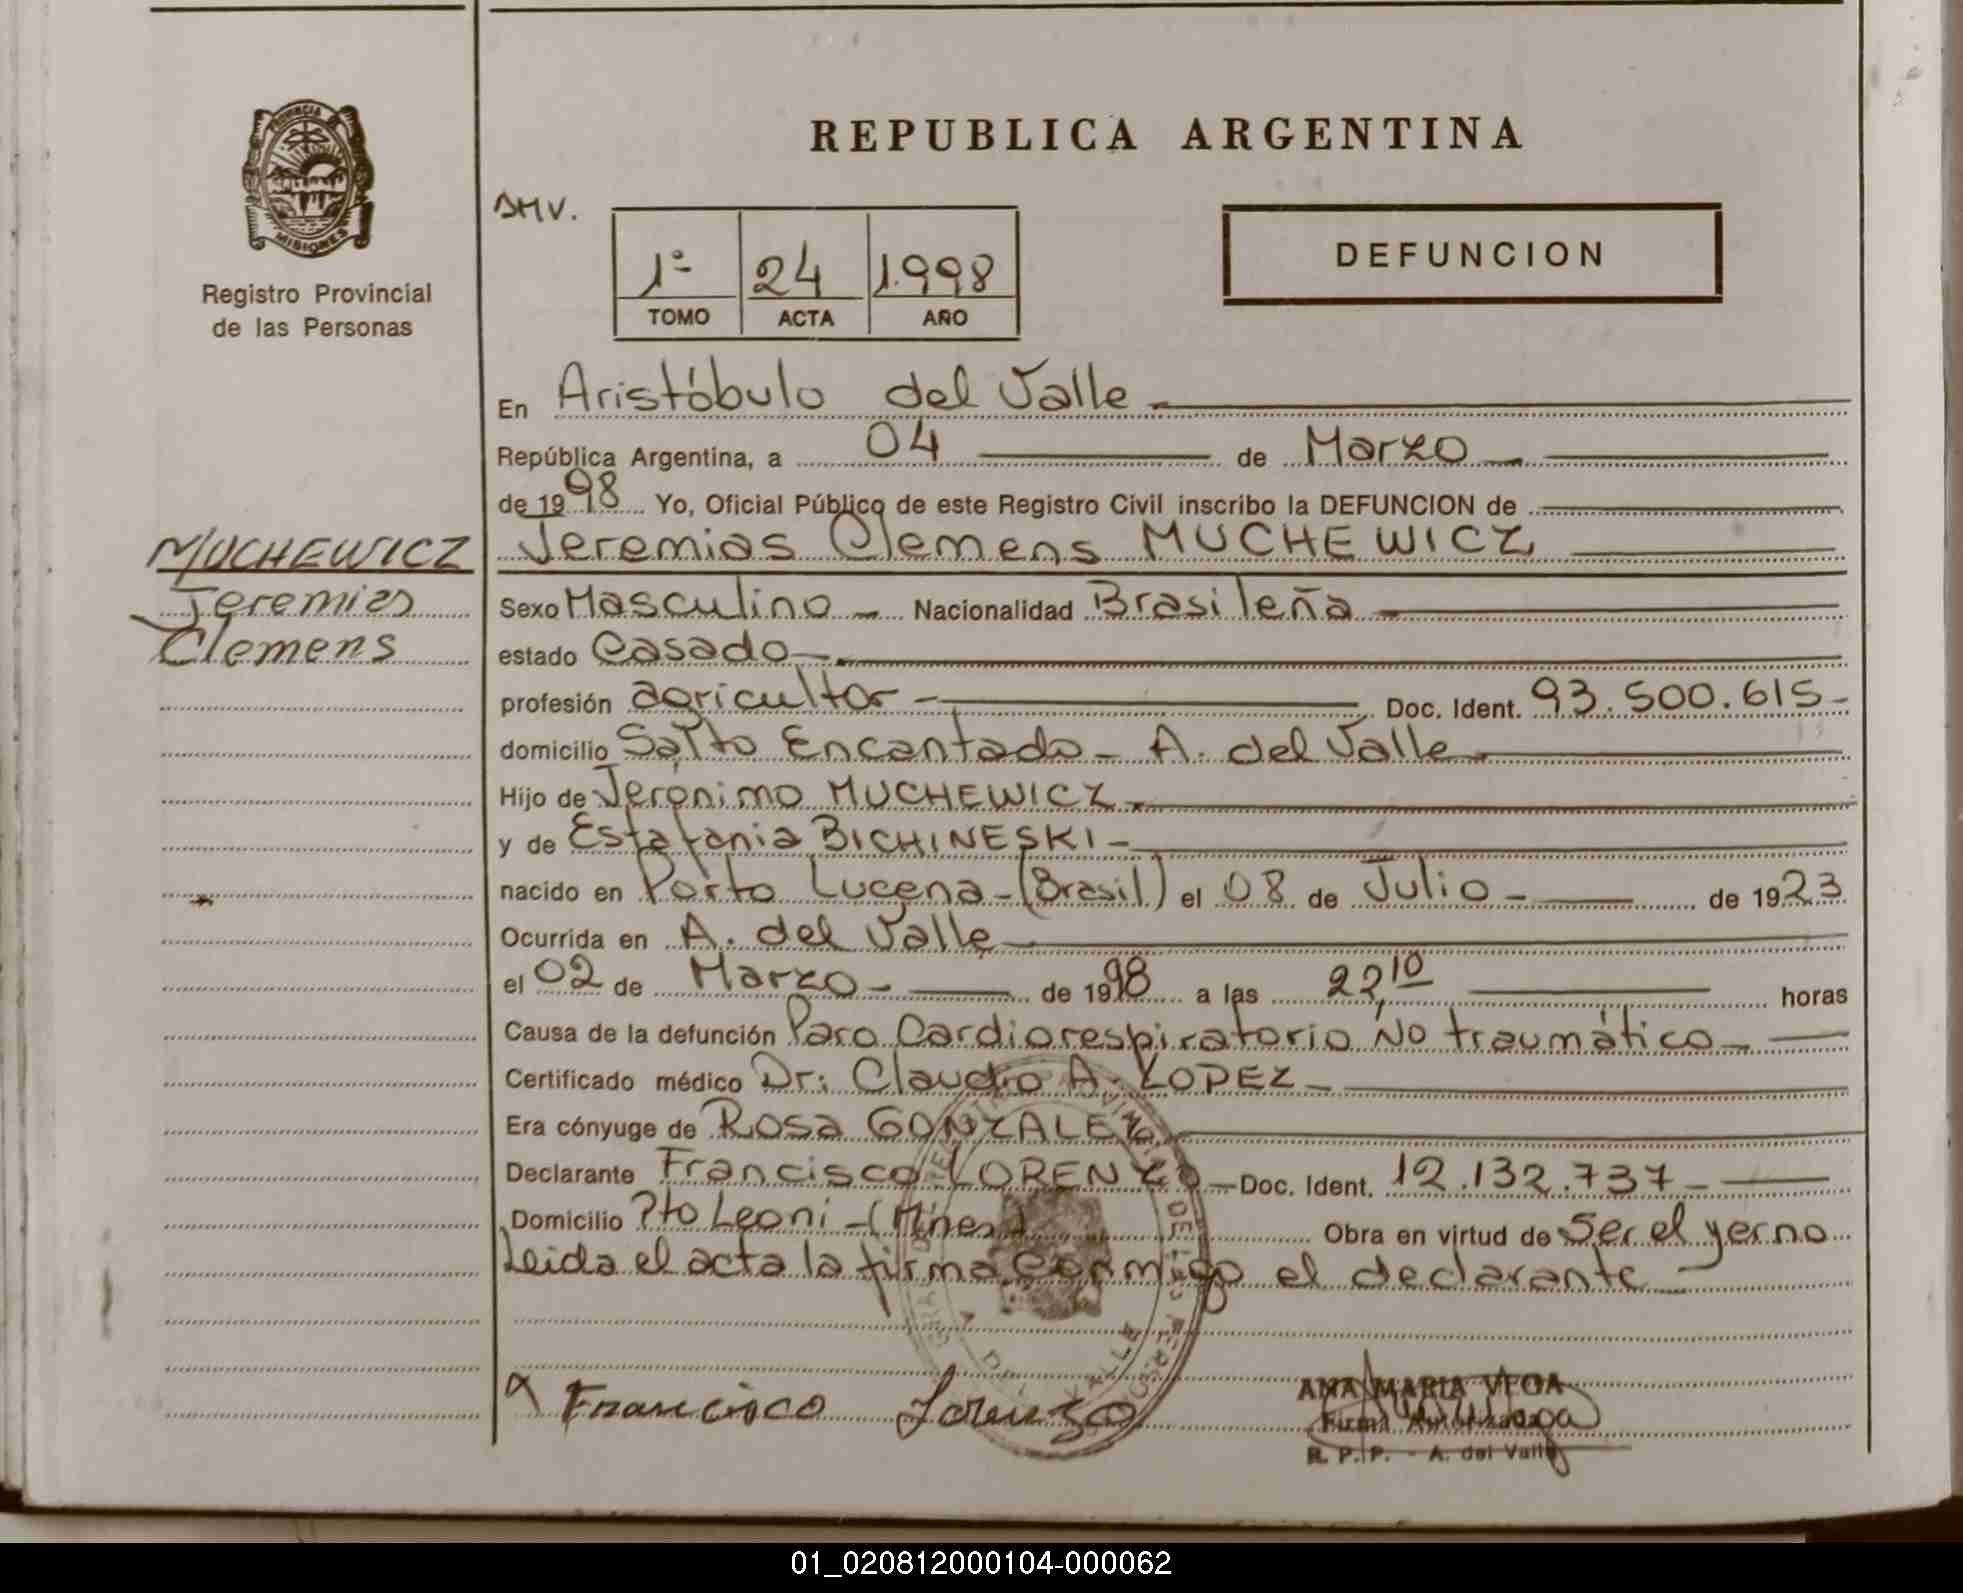 PROVINCIA DE
MISIONES
Registro Provincial
de las Personas
MUCHEWICZ
Jeremias
Clemens
REPUBLICA ARGENTINA
DEFUNCION
1º 24 1.998
TOMO ACTA AÑO
En Aristóbulo del Valle
República Argentina, a 04 de Marzo
de 1998 Yo, Oficial Público de este Registro Civil inscribo la DEFUNCION de
Jeremias Clemens MUCHEWICZ
Sexo Masculino Nacionalidad Brasileña
estado Casado
profesión agricultor Doc. Ident. 93.500.615
domicilio Salto Encantado - A. del Valle
Hijo de Jerónimo MUCHEWICZ
y de Estafania BICHINESKI
nacido en Porto Lucena - (Brasil) el 08 de Julio de 1923
Ocurrida en A. del Valle
el 02 de Marzo de 1998 a las 22,10 horas
Causa de la defunción Paro Cardiorespiratorio No traumático
Certificado médico Dr: Claudio A. LOPEZ
Era cónyuge de Rosa GONZALEZ
Declarante Francisco LORENZO Doc. Ident. 12.132.737
Domicilio Pto Leoni - (Mnes) Obra en virtud de Ser el yerno
Leida el acta la firma conmigo el declarante
Francisco Lorenzo
ANA MARIA VEGA
Firma Autorizada
R. P. P. - A. del Valle
01_020812000104-000062